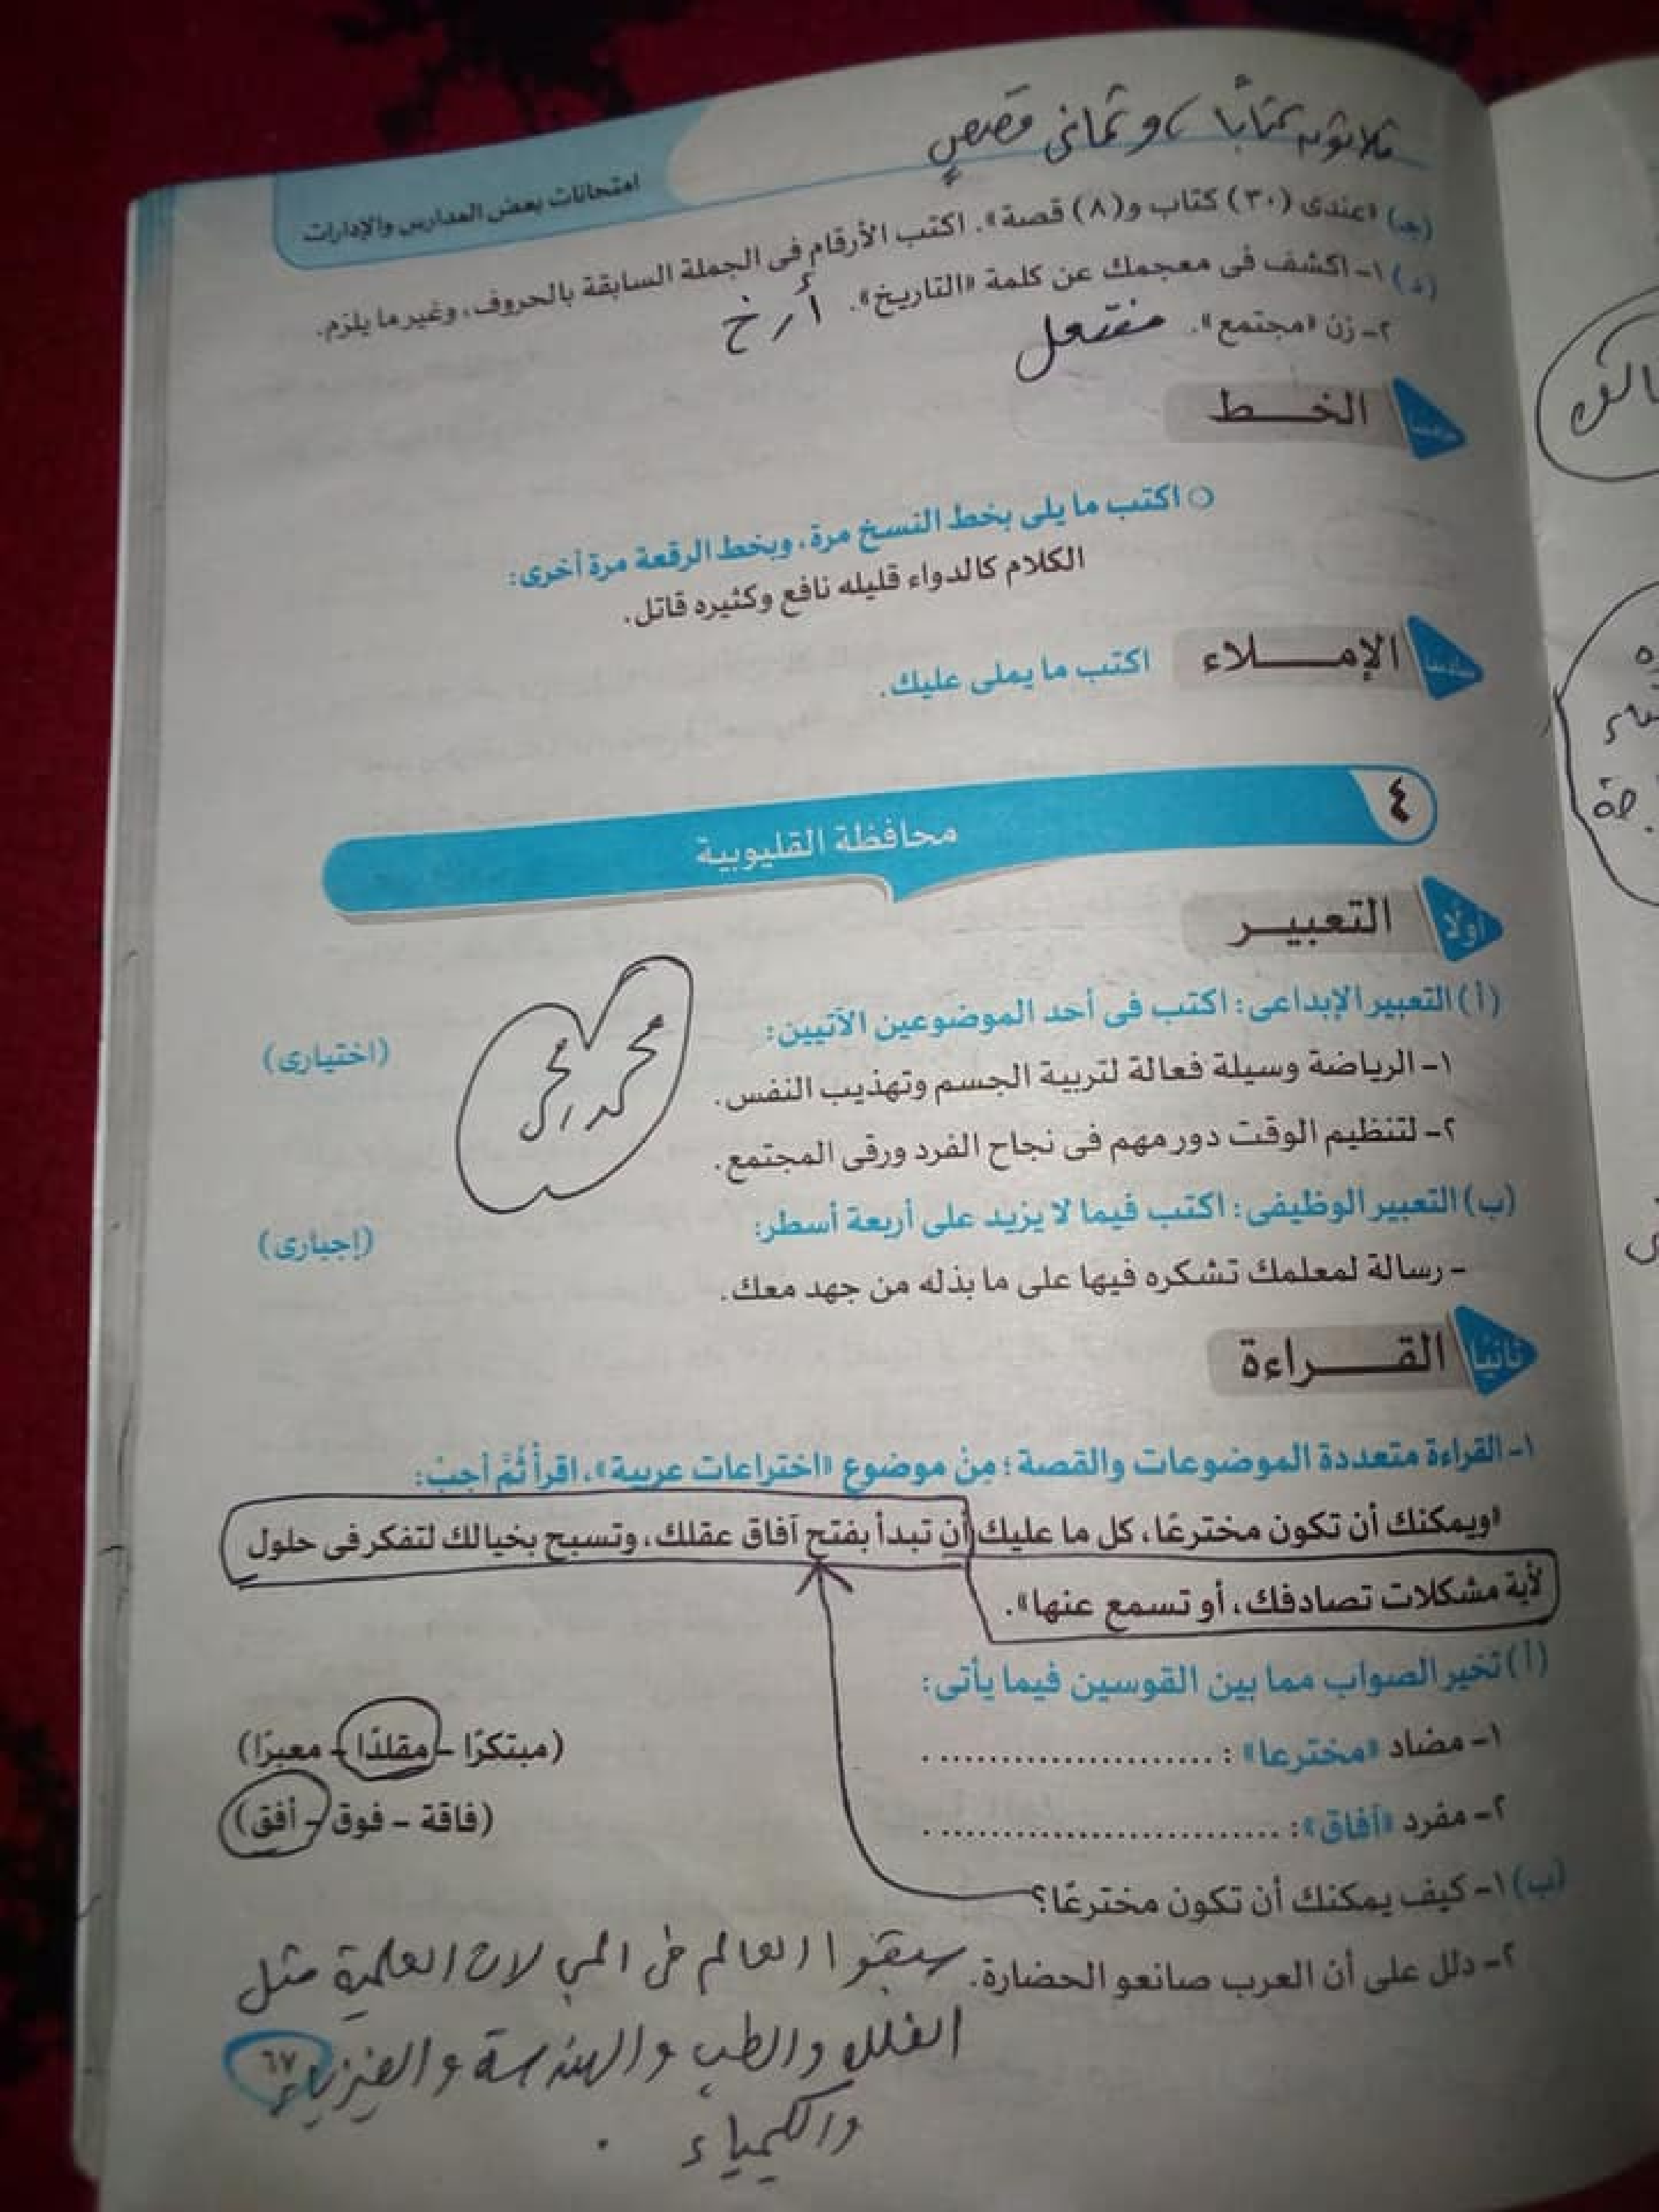 ثلاثون كتابًا، وثمانى قصصٍ
امتحانات بعض المدارس والإدارات
(جـ) «عندى (٣٠) كتاب و(٨) قصة». اكتب الأرقام فى الجملة السابقة بالحروف، وغير ما يلزم.
(د) ١- اكشف فى معجمك عن كلمة «التاريخ». أ ر خ
٢- زن «مجتمع». مفتعل
خامسًا الخـــط
○ اكتب ما يلى بخط النسخ مرة، وبخط الرقعة مرة أخرى:
الكلام كالدواء قليله نافع وكثيره قاتل.
سادسًا الإمـــلاء اكتب ما يملى عليك.
٤ محافظة القليوبية
أولًا التعبيـــر
(أ) التعبير الإبداعى: اكتب فى أحد الموضوعين الآتيين: (اختيارى)
١- الرياضة وسيلة فعالة لتربية الجسم وتهذيب النفس.
٢- لتنظيم الوقت دور مهم فى نجاح الفرد ورقى المجتمع.
(ب) التعبير الوظيفى: اكتب فيما لا يزيد على أربعة أسطر: (إجبارى)
- رسالة لمعلمك تشكره فيها على ما بذله من جهد معك.
ثانيًا القـــراءة
١- القراءة متعددة الموضوعات والقصة؛ مِنْ موضوع «اختراعات عربية»، اقرأْ ثُمَّ أجبْ:
«ويمكنك أن تكون مخترعًا، كل ما عليك أن تبدأ بفتح آفاق عقلك، وتسبح بخيالك لتفكر فى حلول
لأية مشكلات تصادفك، أو تسمع عنها».
(أ) تخير الصواب مما بين القوسين فيما يأتى:
١- مضاد «مخترعا»: .......................... (مبتكرًا - مقلدًا - معبرًا)
٢- مفرد «آفاق»: .............................. (فاقة - فوق - أفق)
(ب) ١- كيف يمكنك أن تكون مخترعًا؟
٢- دلل على أن العرب صانعو الحضارة. سبقوا العالم فى المجالات العلمية مثل
الفلك والطب والهندسة والفيزياء
والكيمياء.
٦٧